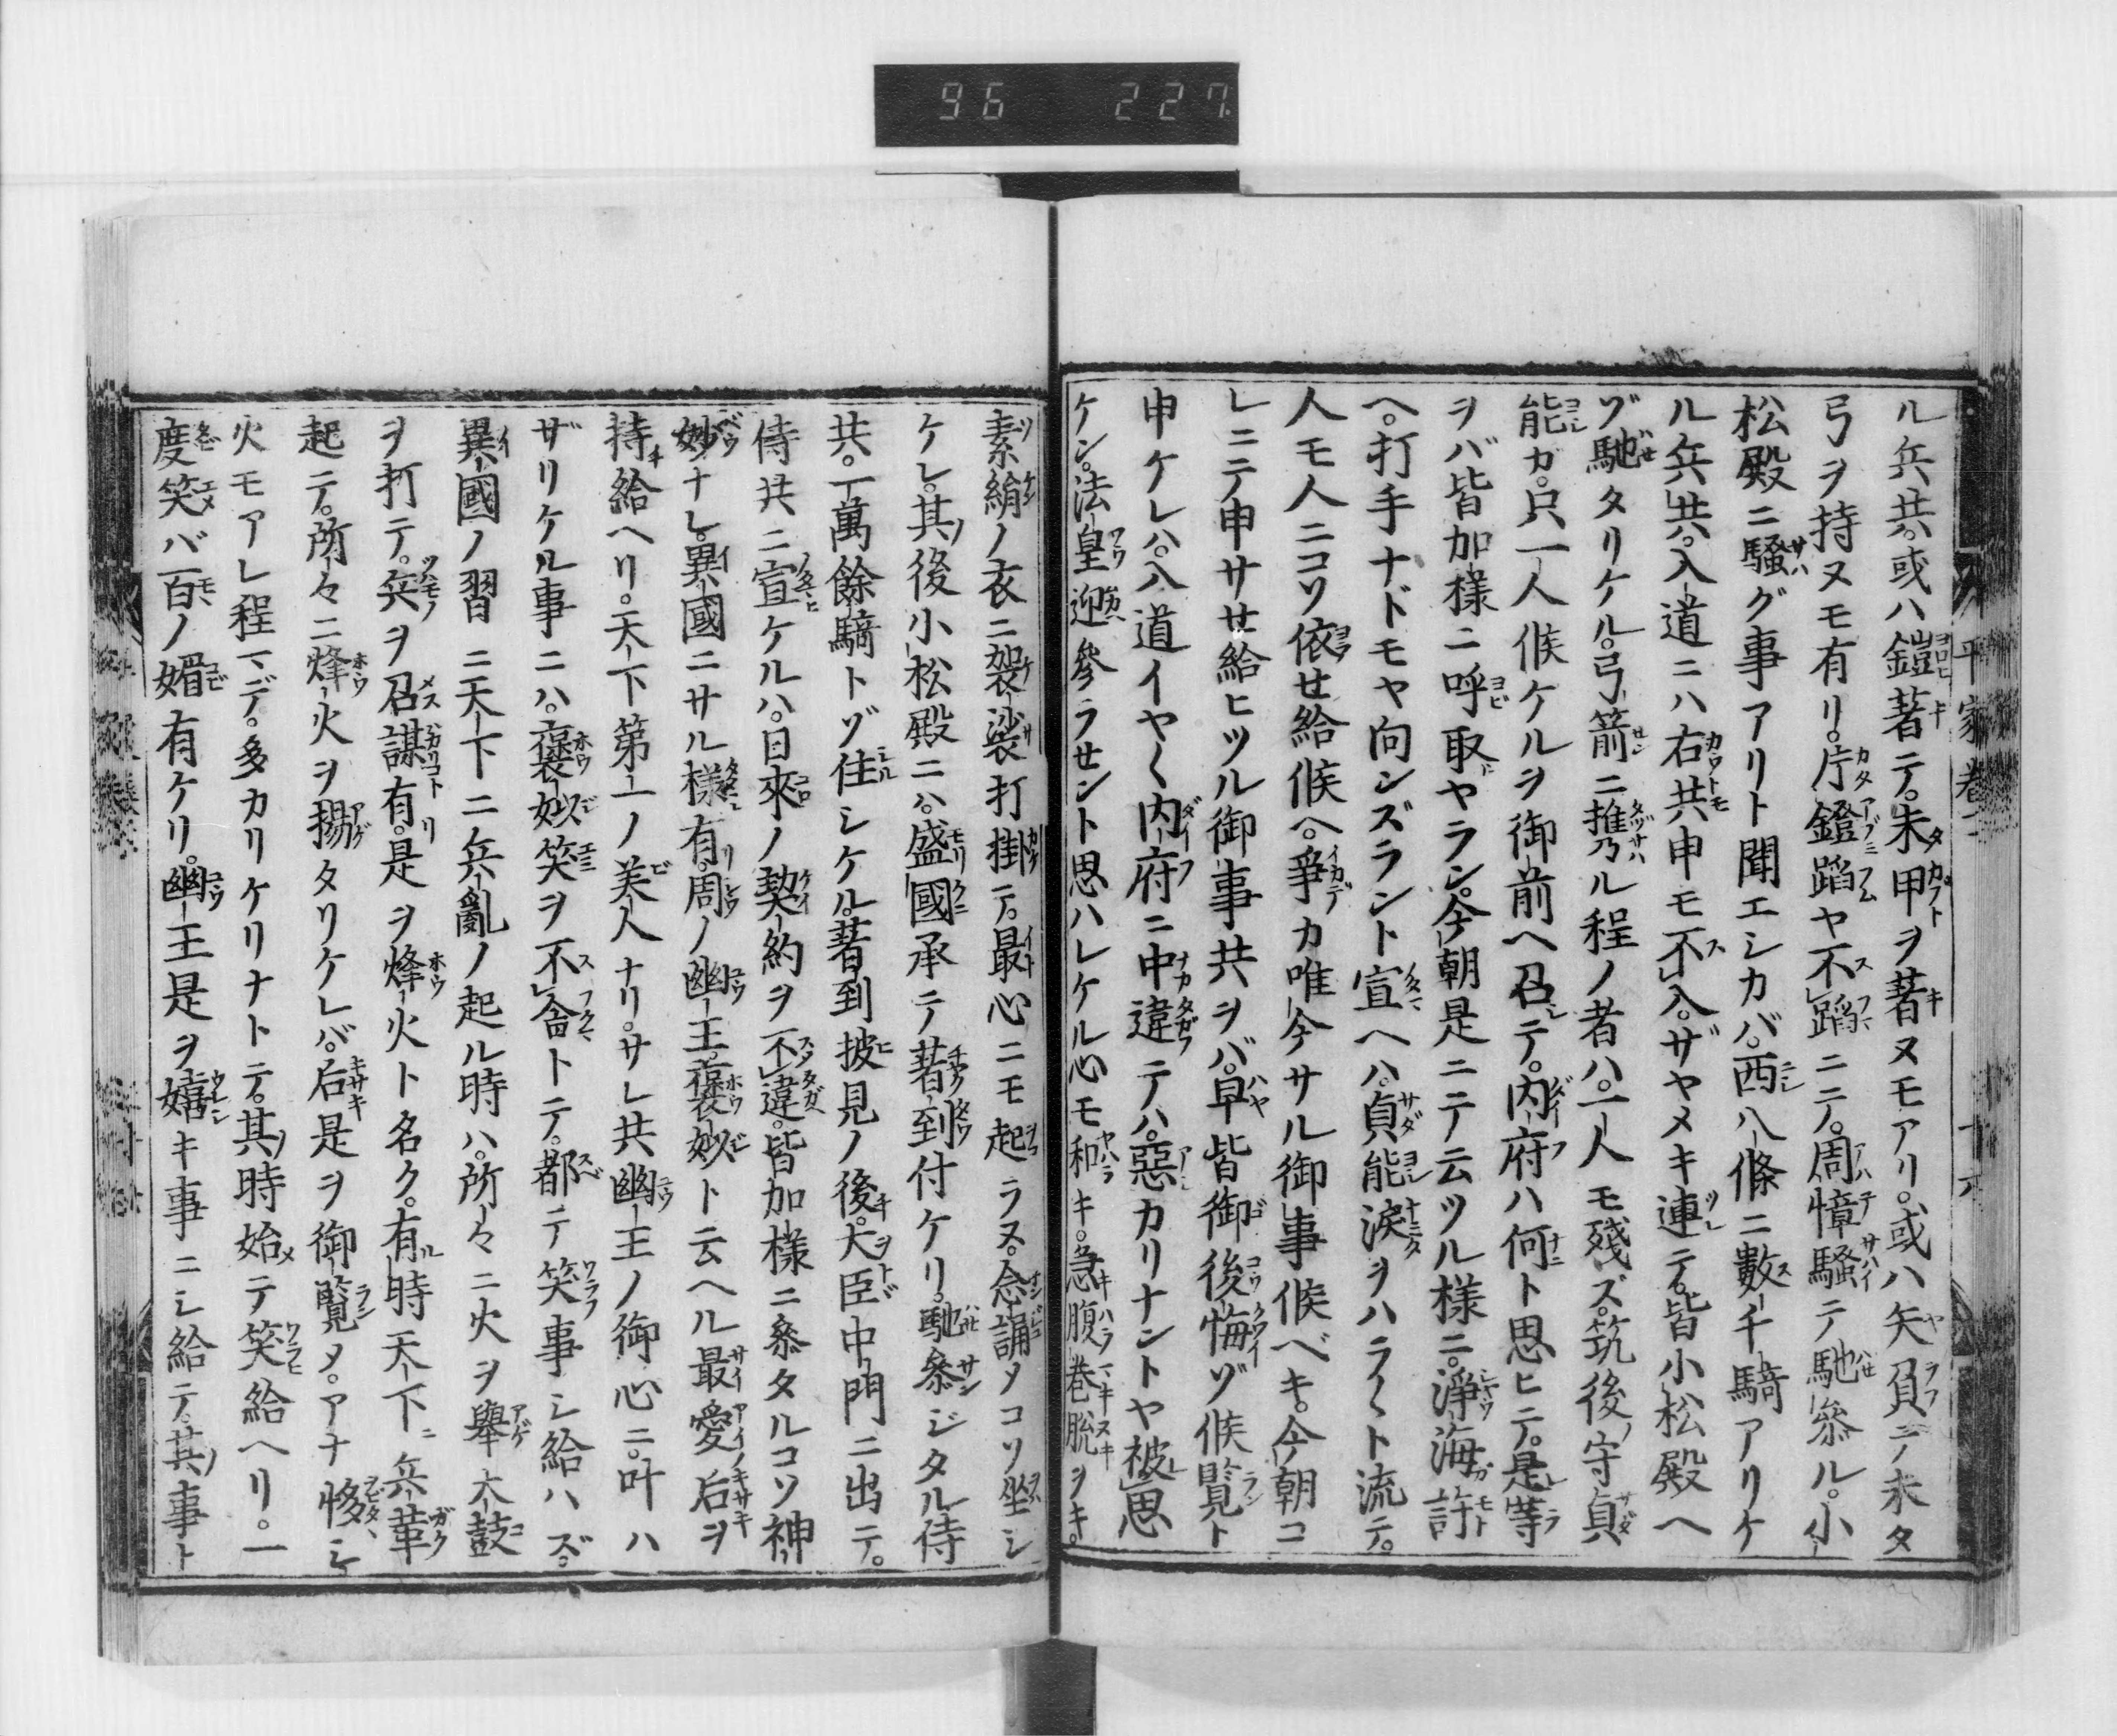 96 227
平家卷二 十六
ル兵共。或ハ鎧著テ。未甲ヲ著ヌモアリ。或ハ矢負テ未タ
弓ヲ持ヌモ有リ。片鐙蹈ヤ不蹈ニテ。周慞騷テ馳參ル。小
松殿ニ騷グ事アリト聞エシカバ。西八條ニ數千騎アリケ
ル兵共。入道ニハ右共申モ不入。ザヤメキ連テ。皆小松殿ヘ
ゾ馳タリケル。弓箭ニ携ル程ノ者ハ。一人モ殘ズ。筑後ノ守貞
能ガ。只一人候ケルヲ御前ヘ召テ。内府ハ何ト思ヒテ。是等
ヲバ皆加樣ニ呼取ヤラン。今朝是ニテ云ツル樣ニ。淨海許
ヘ。打手ナドモヤ向ンズラント宣ヘハ。貞能淚ヲハラ〱ト流テ。
人モ人ニコソ依セ給候ヘ。爭カ唯今サル御事候ベキ。今朝コ
レニテ申サセ給ヒツル御事共ヲバ。早皆御後悔ゾ候覽ト
申ケレハ。入道イヤ〱内府ニ中違テハ。惡カリナントヤ被思
ケン。法皇迎參ラセント思ハレケル心モ和キ。急腹卷脫ヲキ。
素絹ノ衣ニ袈裟打掛テ。最心ニモ起ラヌ。念誦メコソ坐シ
ケレ。其後小松殿ニハ。盛國承テ著到付ケリ。馳參ジタル侍
共。一萬餘騎トゾ住シケル。著到披見ノ後。大臣中門ニ出テ。
侍共ニ宣ケルハ。日來ノ契約ヲ不違。皆加樣ニ參タルコソ神
妙ナレ。異國ニサル樣有。周ノ幽王。褒姒ト云ヘル最愛后ヲ
持給ヘリ。天下第一ノ美人ナリ。サレ共幽王ノ御心ニ。叶ハ
ザリケル事ニハ。褒姒笑ヲ不含トテ。都テ笑事シ給ハズ。
異國ノ習ニ天下ニ兵亂ノ起ル時ハ。所々ニ火ヲ擧大鼓
ヲ打テ。兵ヲ召謀有。是ヲ烽火ト名ク。有時天下ニ兵革
起テ。所々ニ烽火ヲ揚タリケレバ。后是ヲ御覽メ。アナ恀シ
火モアレ程マデ。多カリケリナトテ。其時始テ笑給ヘリ。一
度笑バ百ノ媚有ケリ。幽王是ヲ嬉キ事ニシ給テ。其事ト